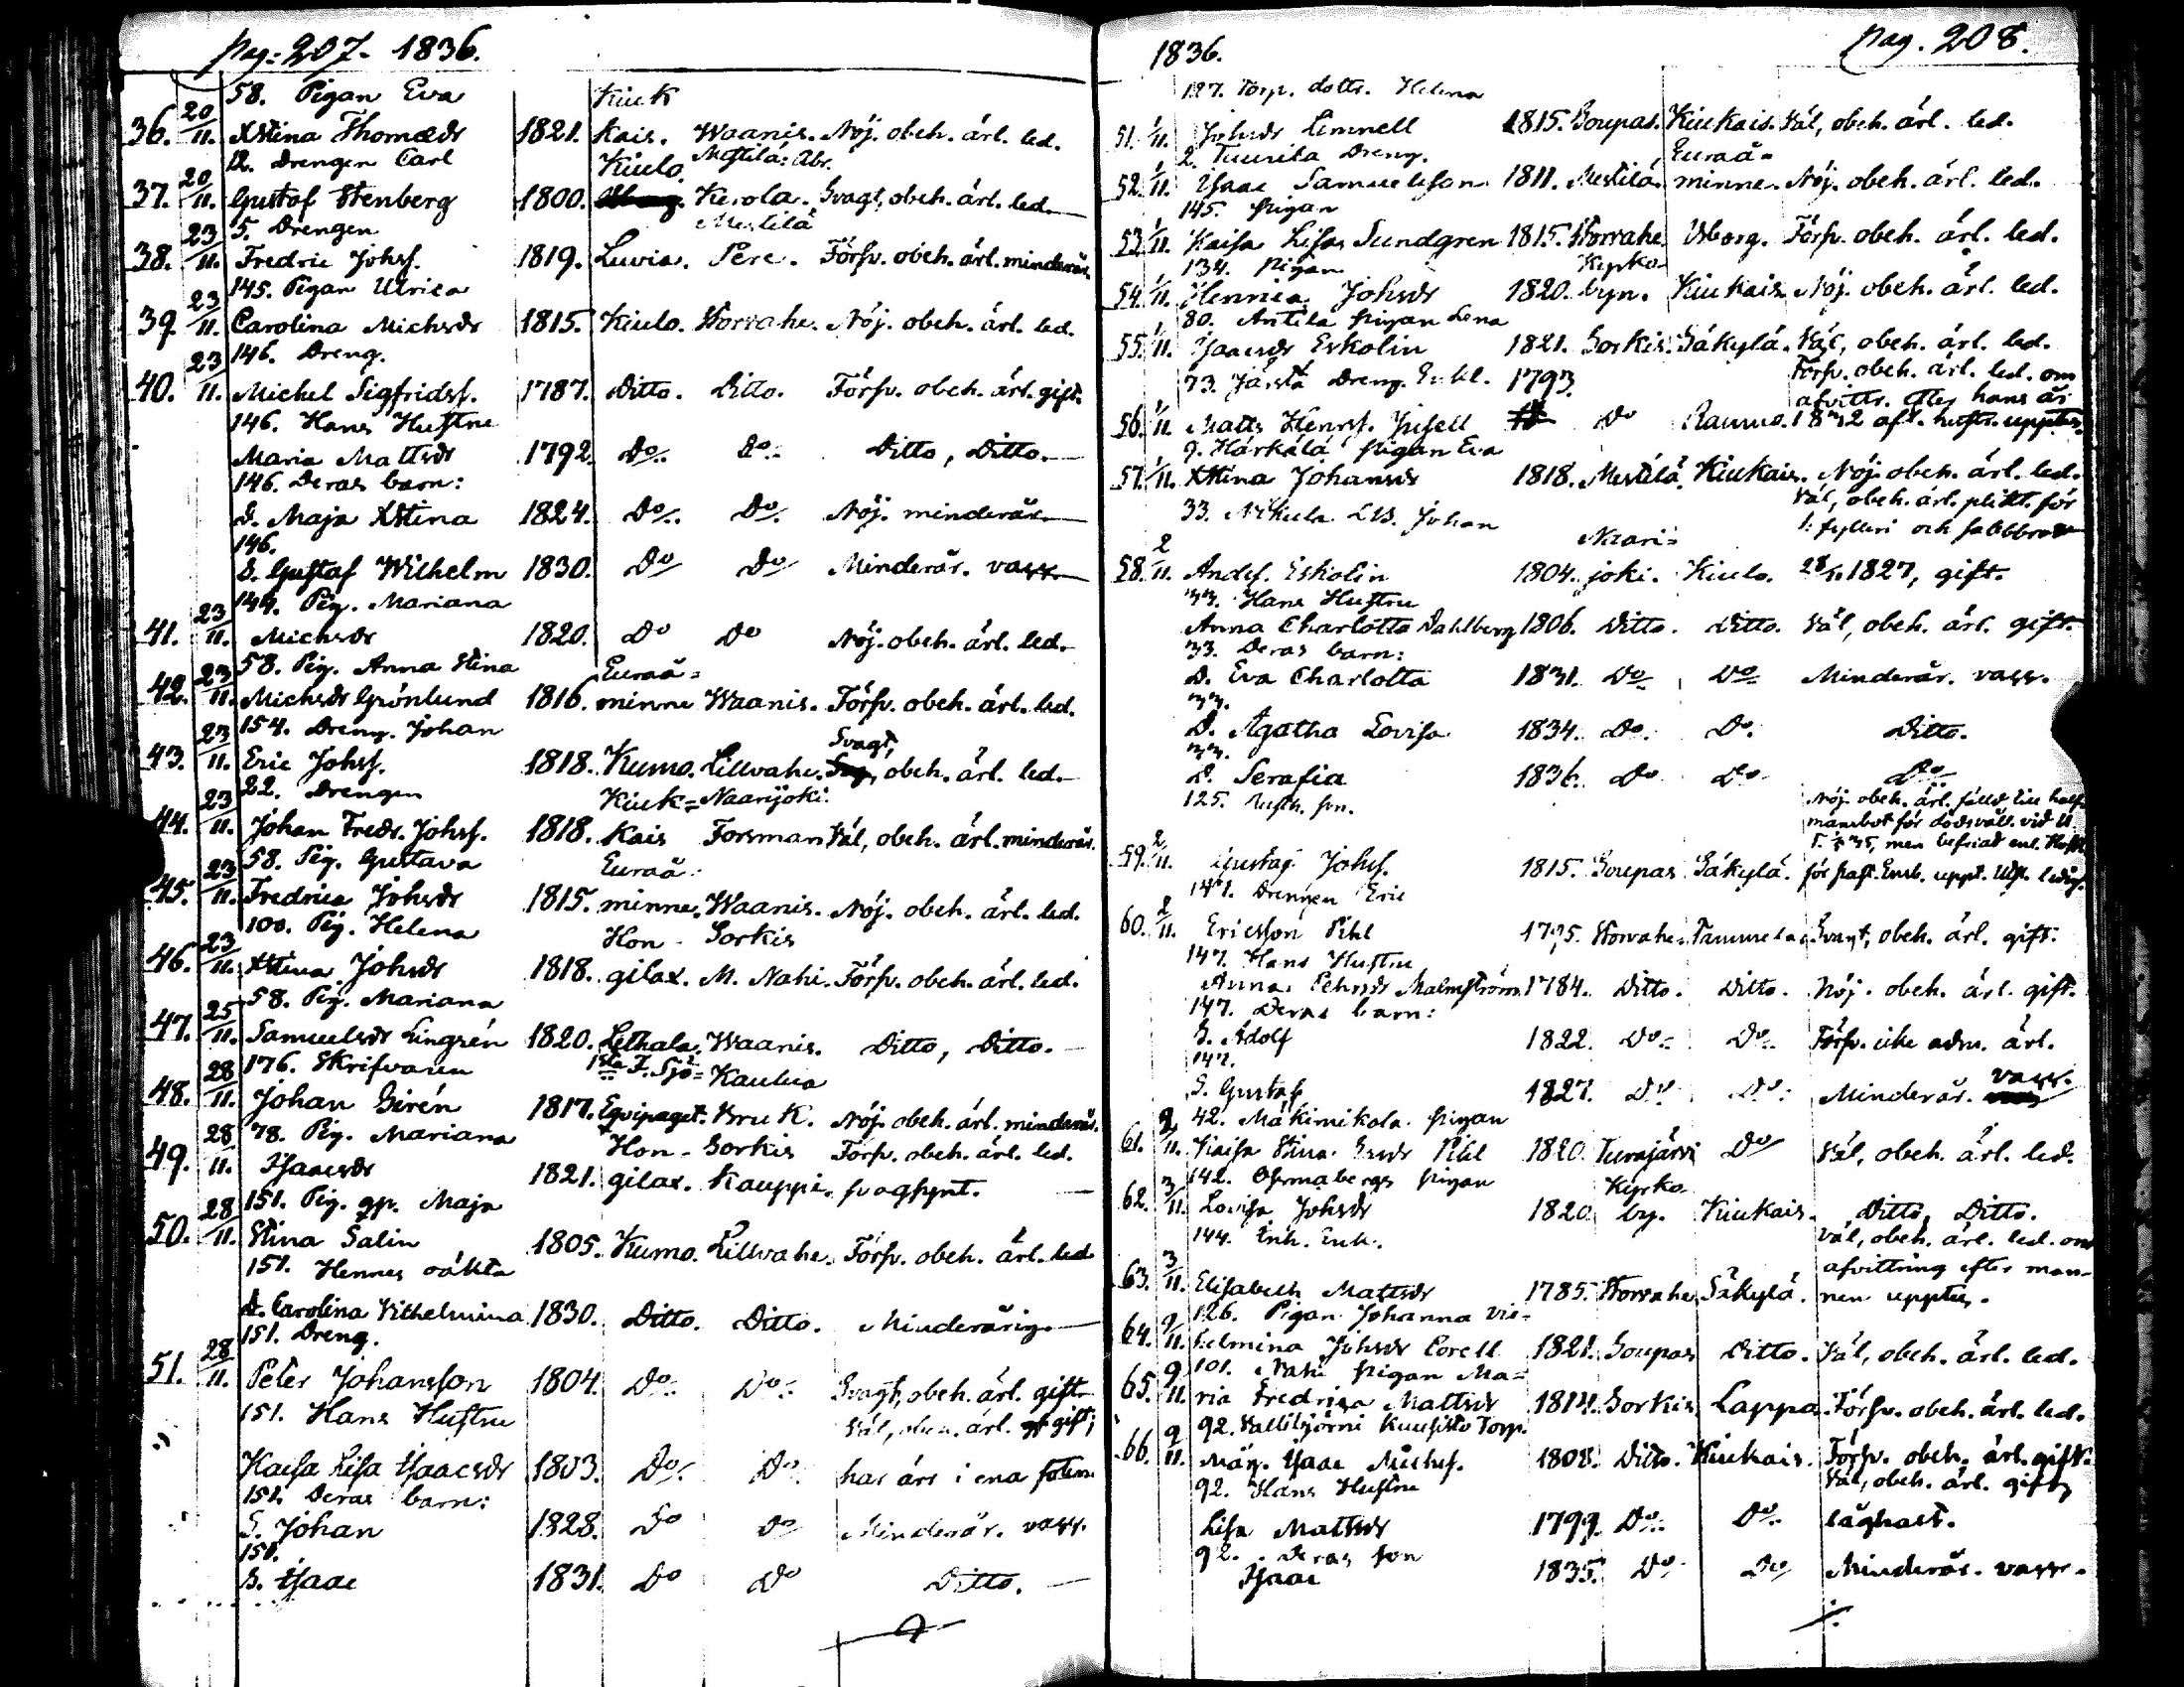 pag: 207- 1836.
58. Pigan Eva Kiuk
36. 20/11. XStina Thomædr 1821. Kais. Waanis. Nöj. obeh. ärl. led.
12. Drengen Carl Kiulo. Mestilä: Abr.
37. 20/11. Gustaf Stenberg 1800. Kerola. Svagt, obeh. ärl. led.
5. Drengen Mestilä
38. 23/11. Fredric Johsf. 1819. Luvia. Pere. Försv. obeh. ärl. minderår.
145. Pigan Ulrica
39 23/11. Carolina Michsdr 1815. Kiulo. Worvahe. Nöj. obeh. ärl. led.
146. Dreng.
40. 23/11. Michel Sigfridsf. 1787. Ditto. Ditto. Försv. obeh. ärl. gift.
146. Hans Hustru
Maria Mattsdr 1792. Do. Do. Ditto, Ditto.
146. Deras barn:
D. Maja XStina 1824. Do. Do. Nöj. minderår.
146.
S. Gustaf Wilhelm 1830. Do Do Minderår. vacc.
144. Pig. Mariana
41. 23/11. Michsdr 1820. Do Do Nöj. obeh. ärl. led.
58. Pig. Anna Stina Euraå=
42. 23/11. Michsdr Grönlund 1816. minne Waanis. Försv. obeh. ärl. led.
154. Dreng. Johan Svagt,
43. 23/11. Eric Johsf. 1818. Kumo. Lillvahe. obeh. ärl. led.
22. Drengen Kiuk= Naarijoki.
44. 23/11. Johan Fredr. Johsf. 1818. Kais Forsman Väl, obeh. ärl. minderår.
58. Pig. Gustava Euraå
45. 23/11. Fredrica Johsdr 1815. minne. Waanis. Nöj. obeh. ärl. led.
100. Pig. Helena Hon- Sorkis
46. 23/11. XStina Johsdr 1818. gilax. M. Nahi. Försv. obeh. ärl. led.
58. Pig. Mariana
47. 25/11. Samuelsdr Lingrén 1820. Lethala. Waanis. Ditto, Ditto.
176. Skrifvaren 1sta F. Sjö= Kautua
48. 28/11. Johan Sirén 1817. Eqvipaget. Bruk. Nöj. obeh. ärl. minderår.
78. Pig. Mariana Hon- Sorkis Försv. obeh. ärl. led.
49. 28/11. Isaacsdr 1821. gilax. Kauppi. svagsynt.
151. Pig. gp. Maja
50. 28/11. Stina Salin 1805. Kumo. Lillvahe. Försv. obeh. ärl. led
151. Hennes oäkta
D. Carolina Vilhelmina 1830. Ditto. Ditto. Minderårig.
151. Dreng.
51. 28/11. Peter Johansson 1804. Do. Do. Svagt, obeh. ärl. gift
151. Hans Hustru Väl, obeh. ärl. gift;
Kaisa Lisa Isaacsdr 1803. Do. Do. har ärr i ena foten.
151. Deras barn:
S. Johan 1828. Do Do Minderår. vacc.
151.
S. Isaac 1831. Do Do Ditto.
1836. pag. 208.
127. Torp. dottr. Helena
51. 1/11. Johsdr Linnell 1815. Soupas. Kiukais. Väl, obeh. ärl. led.
2. Tuurila Dreng. Euraå=
52. 1/11. Isaac Samuelsson 1811. Mestilä. minne. Nöj. obeh. ärl. led.
145. pigan
53. 1/11. Kaisa Lisa Sundgren 1815. Worvahe Ulborg. Försv. obeh. ärl. led.
134. Pigan Kyrko-
54. 1/11. Henrica Johsdr 1820. byn. Kiukais. Nöj. obeh. ärl. led.
80. Antila pigan Lena
55. 1/11. Isaacsdr Eskolin 1821. Sorkis. Säkylä. Väl, obeh. ärl. led.
73. Järstä Dreng. Enkl. 1793. Försv. obeh. ärl. led. om
afvittr. efter hans är
56. 1/11. Matts Henrsf. Do Raumo. 1832 afl. hustr. uppter.
9. Härkälä pigan Eva
57. 1/11. XStina Johansdr 1818. Mestilä. Kiukais. Nöj. obeh. ärl. led.
33. Nikula Johan Väl, obeh. ärl. plikt. för
Naari= 1. fylleri och sabbbrott
58. 2/11. Andsf. Eskolin 1804. joki. Kiulo. 1827, gift.
33. Hans Hustru
Anna Charlotta Dahlberg 1806. Ditto. Ditto. Väl, obeh. ärl. gift.
33. Deras barn:
D. Eva Charlotta 1831. Do Do Minderår. vacc.
33.
D. Agatha Lovisa 1834. Do. Do. Ditto.
33.
D. Serafia 1836. Do Do Do
125. son. Nöj. obeh. ärl. fälld till half
mansbot för dödsvåll. vid
men befriad enl.
59. 2/11. Gustaf Johsf. 1815. Soupas Säkylä.
147. Drengen Eric
60. 2/11. Ericsson Pihl 1795. Worvahe. Tammela. Svagt, obeh. ärl. gift.
147. Hans Hustru
Anna Pehrsdr Malmström. 1784. Ditto. Ditto. Nöj. obeh. ärl. gift.
147. Deras barn:
S. Adolf 1822. Do. Do. Försv. icke adm. ärl.
147. vacc.
S. Gustaf 1827. Do Do. Minderår.
42. Mäkimikola pigan
61. 2/11. Kaisa Stina Pihl 1820. Turajärvi Do Väl, obeh. ärl. led.
142. pigan Kyrko-
62. 3/11. Lovisa Johsdr 1820. by. Kiukais. Ditto, Ditto.
144. Inh. Enk. Väl, obeh. ärl. led. om
afvittring efter man-
63. 3/11. Elisabeth Mattsdr 1785. Worvahe Säkylä. nen uppter.
126. Pigan Johanna Vil=
64. 9/11. helmina Johsdr Corell 1821. Soupas Ditto. Väl, obeh. ärl. led.
101. Nahi pigan Ma=
65. 9/11. ria Fredrica Mattsdr 1814. Sorkis Lappa. Försv. obeh. ärl. led.
92. Vallibjörni Kuusisto Torp.
66. 9/11. Måg. Isaac Michsf. 1808. Ditto. Kiukais. Försv. obeh. ärl. gift.
92. Hans Hustru Väl, obeh. ärl. gift,
Lisa Mattsdr 1799. Do. Do. låghalt.
92. Deras son
Isaac 1835. Do Do Minderår. vacc.